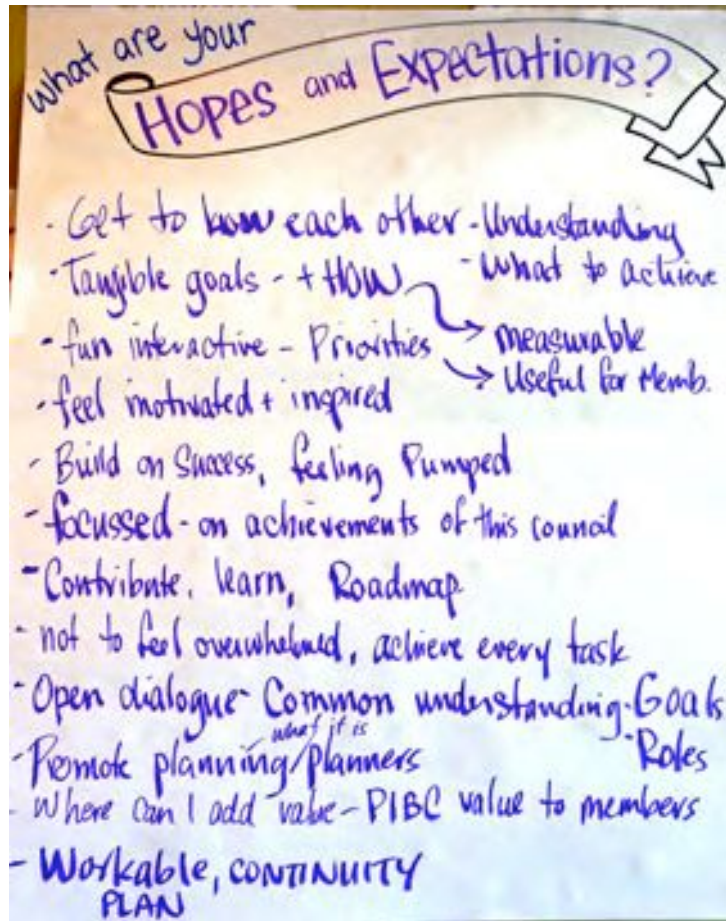 What are your
Hopes and Expectations?
- Get to know each other - Understanding
- Tangible goals - + HOW - What to achieve
- fun interactive - Priorities → measurable
→ Useful for Memb.
- feel motivated + inspired
- Build on Success, feeling Pumped
- focussed - on achievements of this council
- Contribute, learn, Roadmap
- not to feel overwhelmed, achieve every task
- Open dialogue - Common understanding - Goals
- Roles
what it is
- Promote planning/planners
- Where can I add value - PIBC value to members
- Workable, CONTINUITY
PLAN